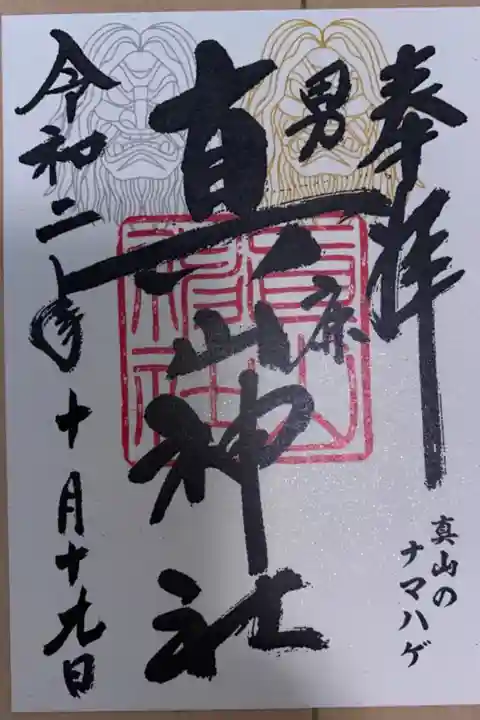 奉拝
真山の
ナマハゲ
男鹿
真山神社
令和二年十月十九日